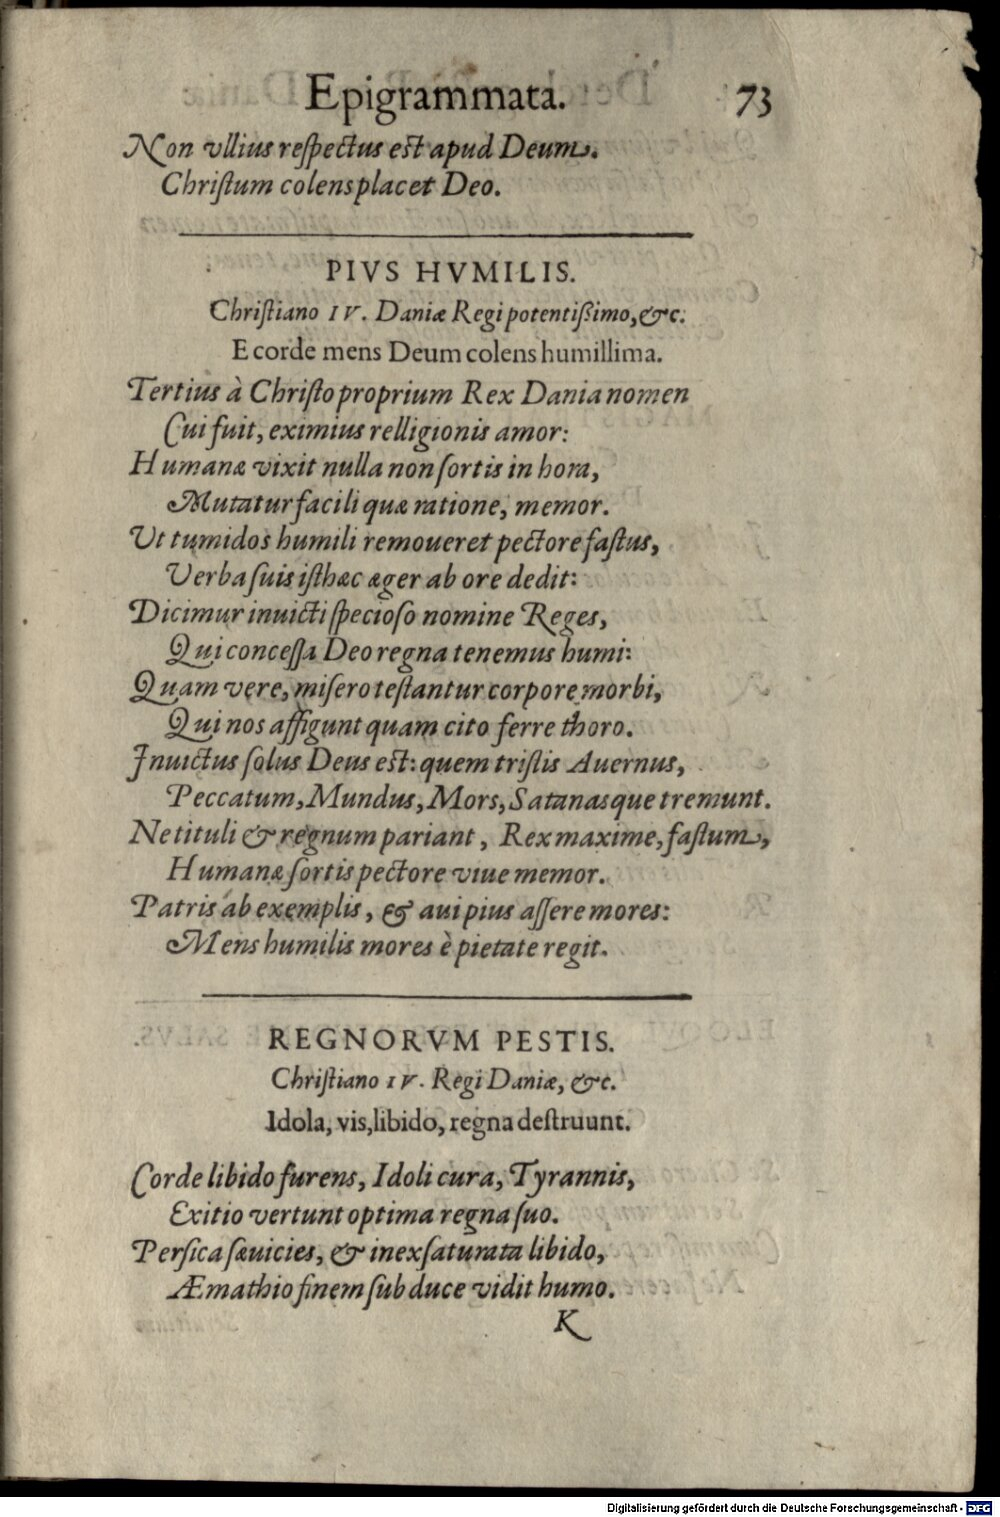 Epigrammata. 73
Non vllius reſpectus est apud Deum.
Chriſtum colens placet Deo.
PIVS HVMILIS.
Chriſtiano IV. Daniæ Regi potentißimo, &c.
E corde mens Deum colens humillima.
Tertius à Chriſto proprium Rex Dania nomen
Cui fuit, eximius relligionis amor:
Humanæ vixit nulla non ſortis in hora,
Mutatur facili quæ ratione, memor.
Ut tumidos humili remoueret pectore faſtus,
Verba ſuis iſthæc æger ab ore dedit:
Dicimur inuicti ſpecioſo nomine Reges,
Qui conceſſa Deo regna tenemus humi:
Quam vere, miſero teſtantur corpore morbi,
Qui nos affigunt quam cito ferre thoro.
Inuictus ſolus Deus est: quem triſtis Auernus,
Peccatum, Mundus, Mors, Satanasque tremunt.
Ne tituli & regnum pariant, Rex maxime, faſtum,
Humanæ ſortis pectore viue memor.
Patris ab exemplis, & aui pius aſſere mores:
Mens humilis mores è pietate regit.
REGNORVM PESTIS.
Chriſtiano IV. Regi Daniæ, &c.
Idola, vis, libido, regna deſtruunt.
Corde libido furens, Idoli cura, Tyrannis,
Exitio vertunt optima regna ſuo.
Perſica ſæuicies, & inexſaturata libido,
Æmathio finem ſub duce vidit humo.
K
Digitalisierung gefördert durch die Deutsche Forschungsgemeinschaft - DFG